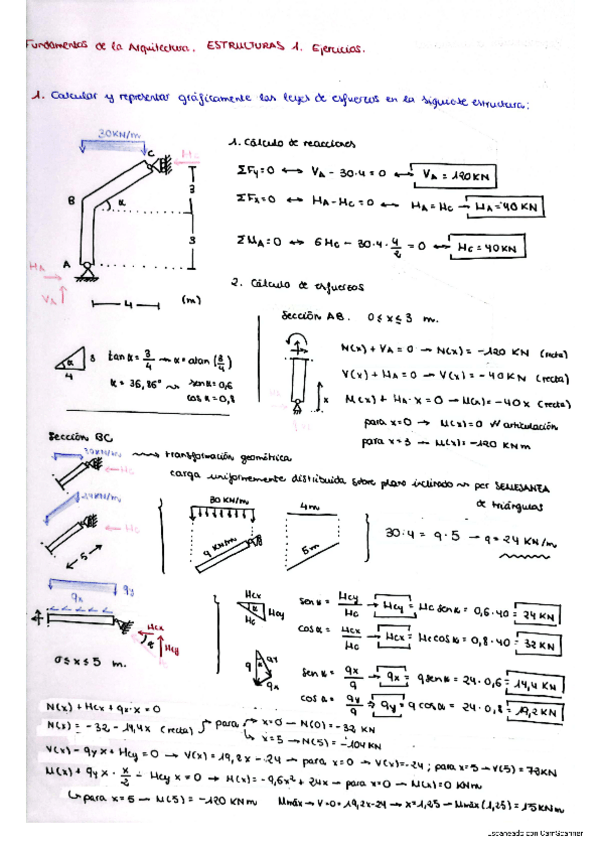 Fundamentos de la Arquitectura. ESTRUCTURAS 1. Ejercicios.
1. Calcular y representar gráficamente las leyes de esfuerzos en la siguiente estructura:
30KN/m
C
Hc
B
α
3
3
A
HA
VA
4
(m)
1. Cálculo de reacciones
ΣFy=0 ↔ VA - 30·4 = 0 ↔ VA = 120 KN
ΣFx=0 ↔ HA - Hc = 0 ↔ HA = Hc → HA = 40 KN
ΣMA=0 ↔ 6Hc - 30·4·4/2 = 0 ↔ Hc = 40KN
2. Cálculo de esfuerzos
Sección AB. 0 ≤ x ≤ 3 m.
x
N(x) + VA = 0 → N(x) = -120 KN (recta)
V(x) + HA = 0 → V(x) = -40 KN (recta)
M(x) + HA·x = 0 → M(x) = -40x (recta)
para x=0 → M(x)=0 // articulación
para x=3 → M(x)= -120 KNm
α
3
4
tan α = 3/4 → α = atan (3/4)
α = 36,86° → sen α = 0,6
cos α = 0,8
Sección BC
30KN/m
Hc
24KN/m
Hc
5
transformación geométrica
carga uniformemente distribuida sobre plano inclinado → por SEMEJANZA
de triángulos
30 KN/m
q KN/m
4m
5m
30·4 = q·5 → q = 24 KN/m
qy
qx
Hcx
Hcy
0 ≤ x ≤ 5 m.
Hcx
α
Hcy
Hc
sen α = Hcy/Hc → Hcy = Hc sen α = 0,6·40 = 24 KN
cos α = Hcx/Hc → Hcx = Hc cos α = 0,8·40 = 32 KN
q
α
qy
qx
sen α = qx/q → qx = q sen α = 24·0,6 = 14,4 KN
cos α = qy/q → qy = q cos α = 24·0,8 = 19,2 KN
N(x) + Hcx + qx·x = 0
N(x) = -32 - 14,4x (recta) para x=0 → N(0) = -32 KN
x=5 → N(5) = -104 KN
V(x) - qy x + Hcy = 0 → V(x) = 19,2x - 24 → para x=0 → V(x)=-24 ; para x=5 → V(5) = 72KN
M(x) + qy x · x/2 - Hcy x = 0 → M(x) = -9,6x² + 24x → para x=0 → M(x)=0 KNm
para x=5 → M(5) = -120 KNm Mmáx → V=0= 19,2x-24 → x=1,25 → Mmáx(1,25) = 15KNm
Escaneado con CamScanner